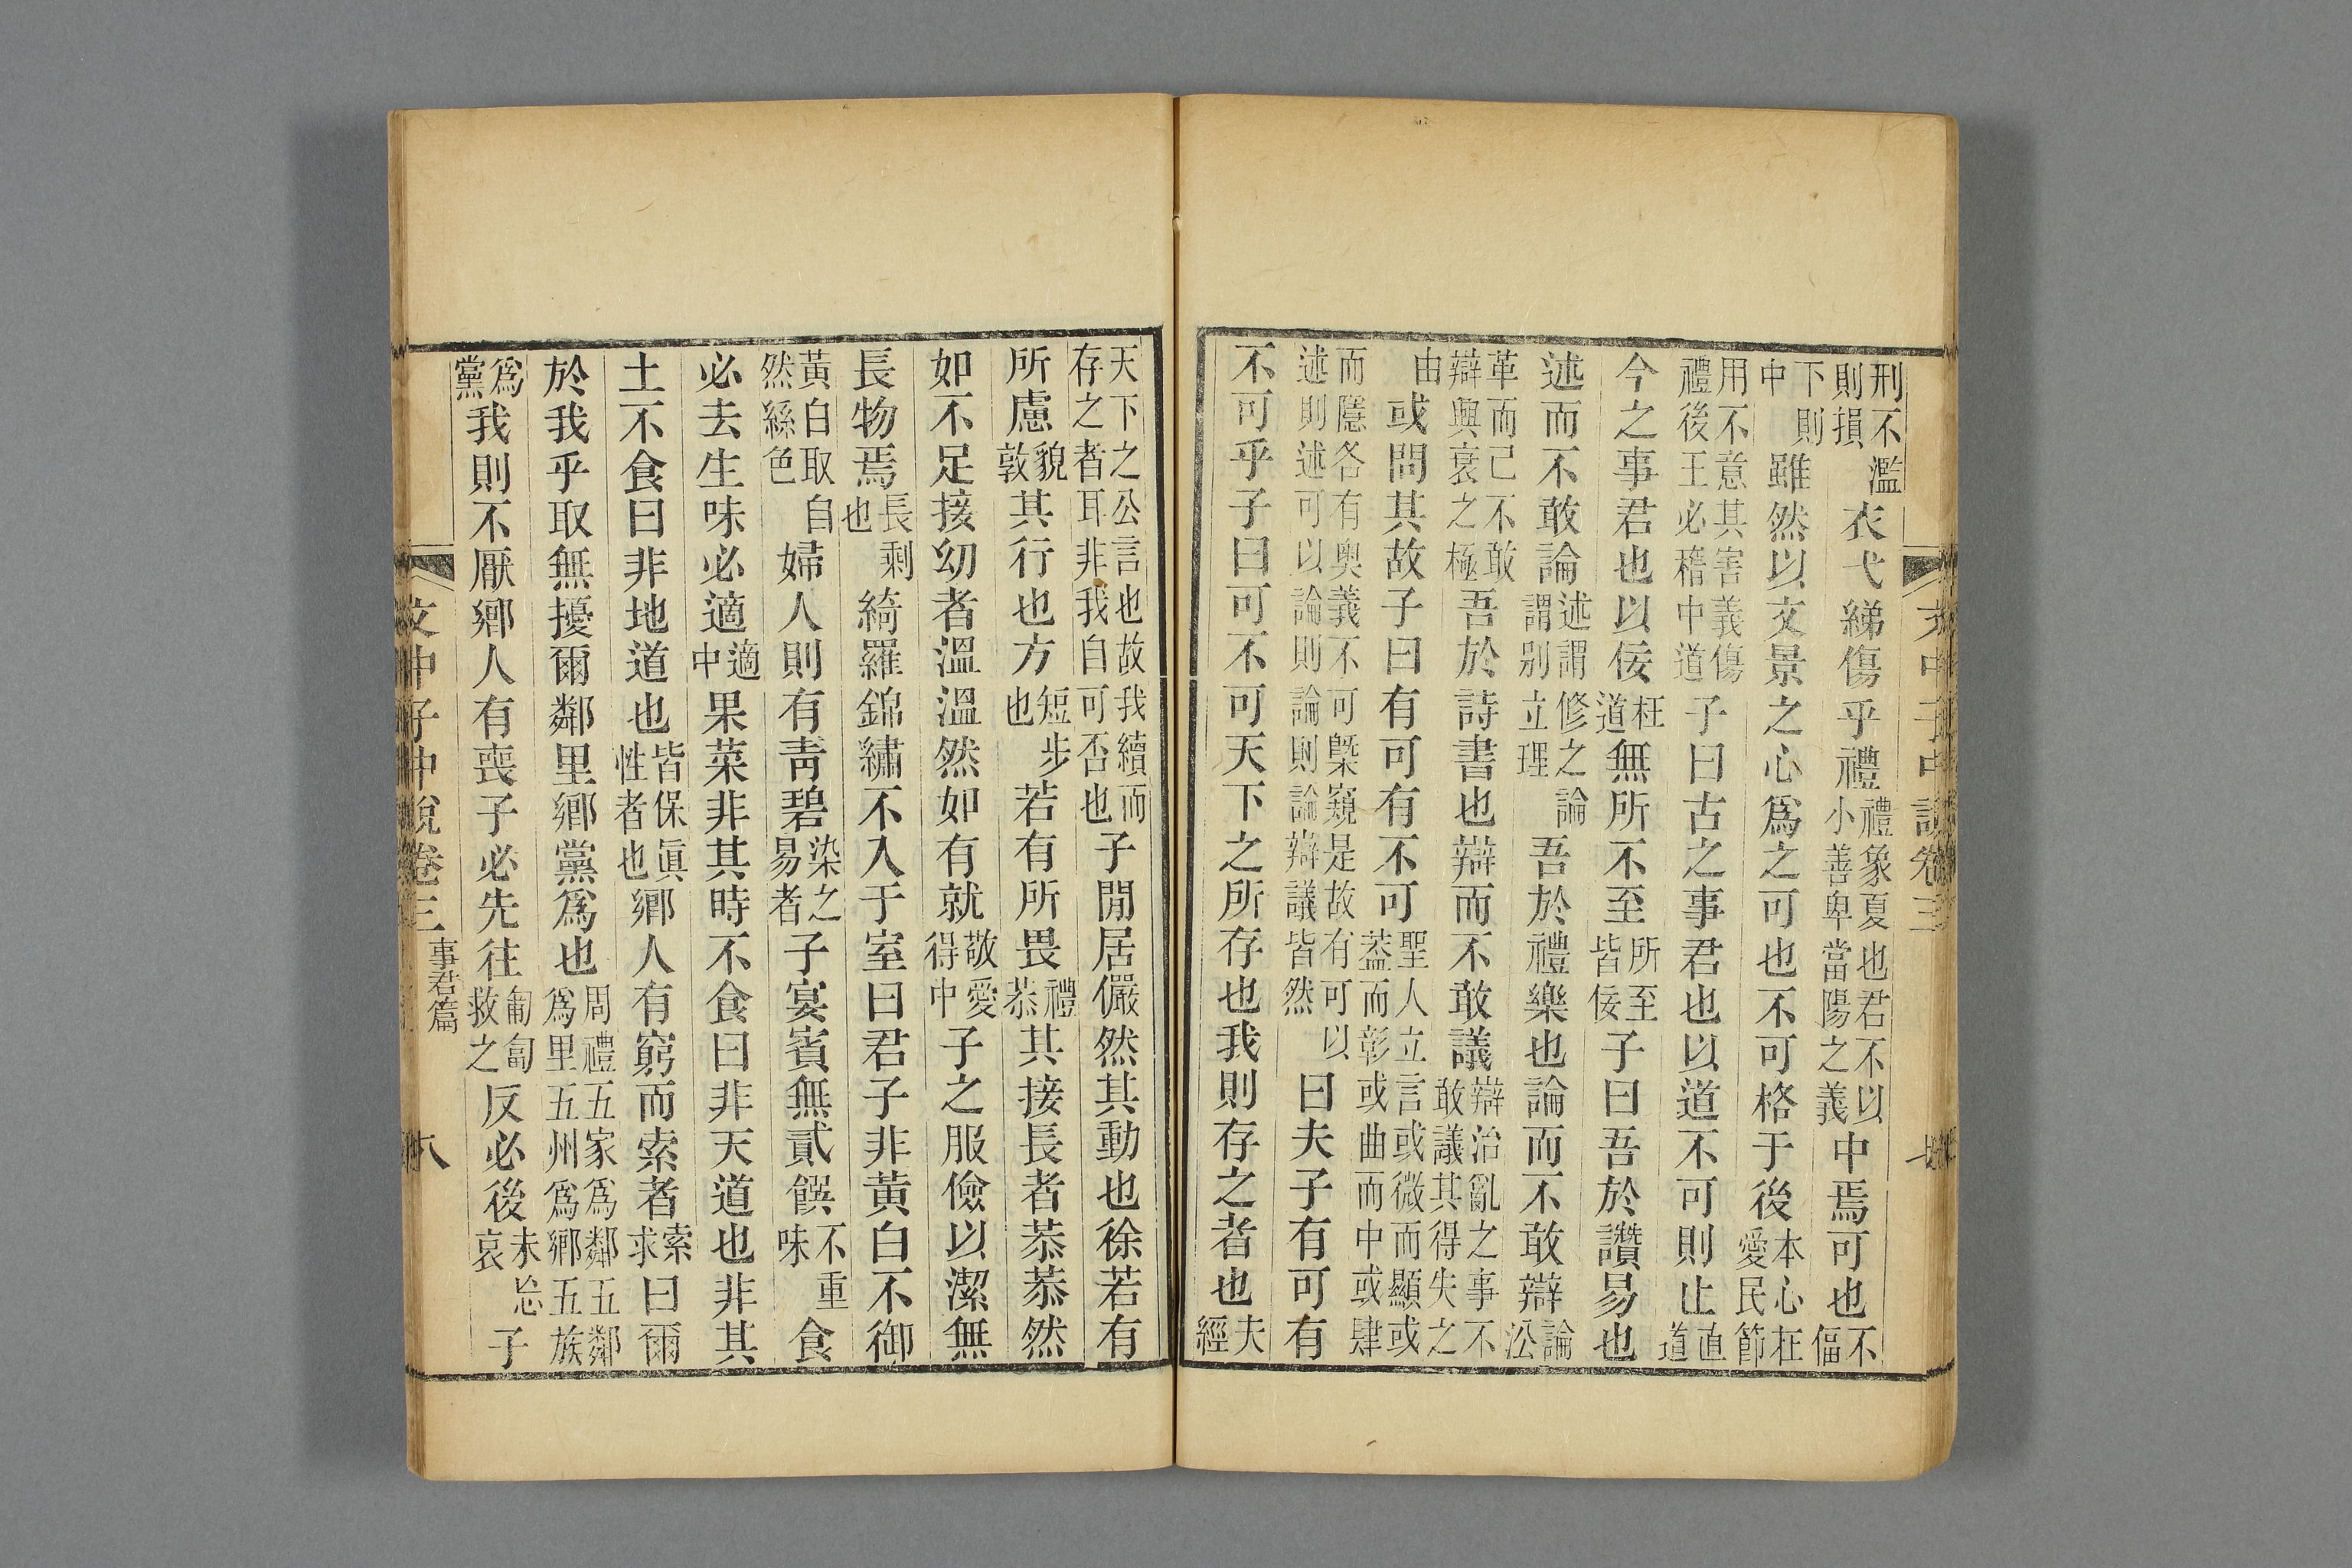 刑不濫則損衣弋綈傷乎禮禮象夏也君不以小善卑當陽之義中焉可也不偪
下則中雖然以文景之心爲之可也不可格于後本心枉愛民節
用不意其害義傷禮後王必稽中道子曰古之事君也以道不可則止直道
今之事君也以佞枉道無所不至所至皆佞子曰吾於讚易也
述而不敢論述謂修之論謂別立理吾於禮樂也論而不敢辯論沿
革而己不敢辯興衰之極吾於詩書也辯而不敢議辯治亂之事不敢議其得失之
由或問其故子曰有可有不可聖人立言或微而顯或葢而彰或曲而中或肆
而隱各有奧義不可槩窺是故有可以述則述可以論則論則論辯議皆然曰夫子有可有
不可乎子曰可不可天下之所存也我則存之者也夫經
文中子中說卷三
天下之公言也故我續而存之者耳非我自可否也子閒居儼然其動也徐若有
所慮貌敦其行也方短步也若有所畏禮恭其接長者恭恭然
如不足接幼者溫溫然如有就敬愛得中子之服儉以潔無
長物焉長剩也綺羅錦繡不入于室曰君子非黃白不御
黃白取自然絲色婦人則有靑碧染之易者子宴賓無貳饌不重味食
必去生味必適適中果菜非其時不食曰非天道也非其
土不食曰非地道也皆保眞性者也鄉人有窮而索者索求曰爾
於我乎取無擾爾鄰里鄉黨爲也周禮五家爲鄰五鄰爲里五州爲鄉五族
爲黨我則不厭鄉人有喪子必先往匍匐救之反必後未忘哀子
文中子中說卷三 事君篇 八